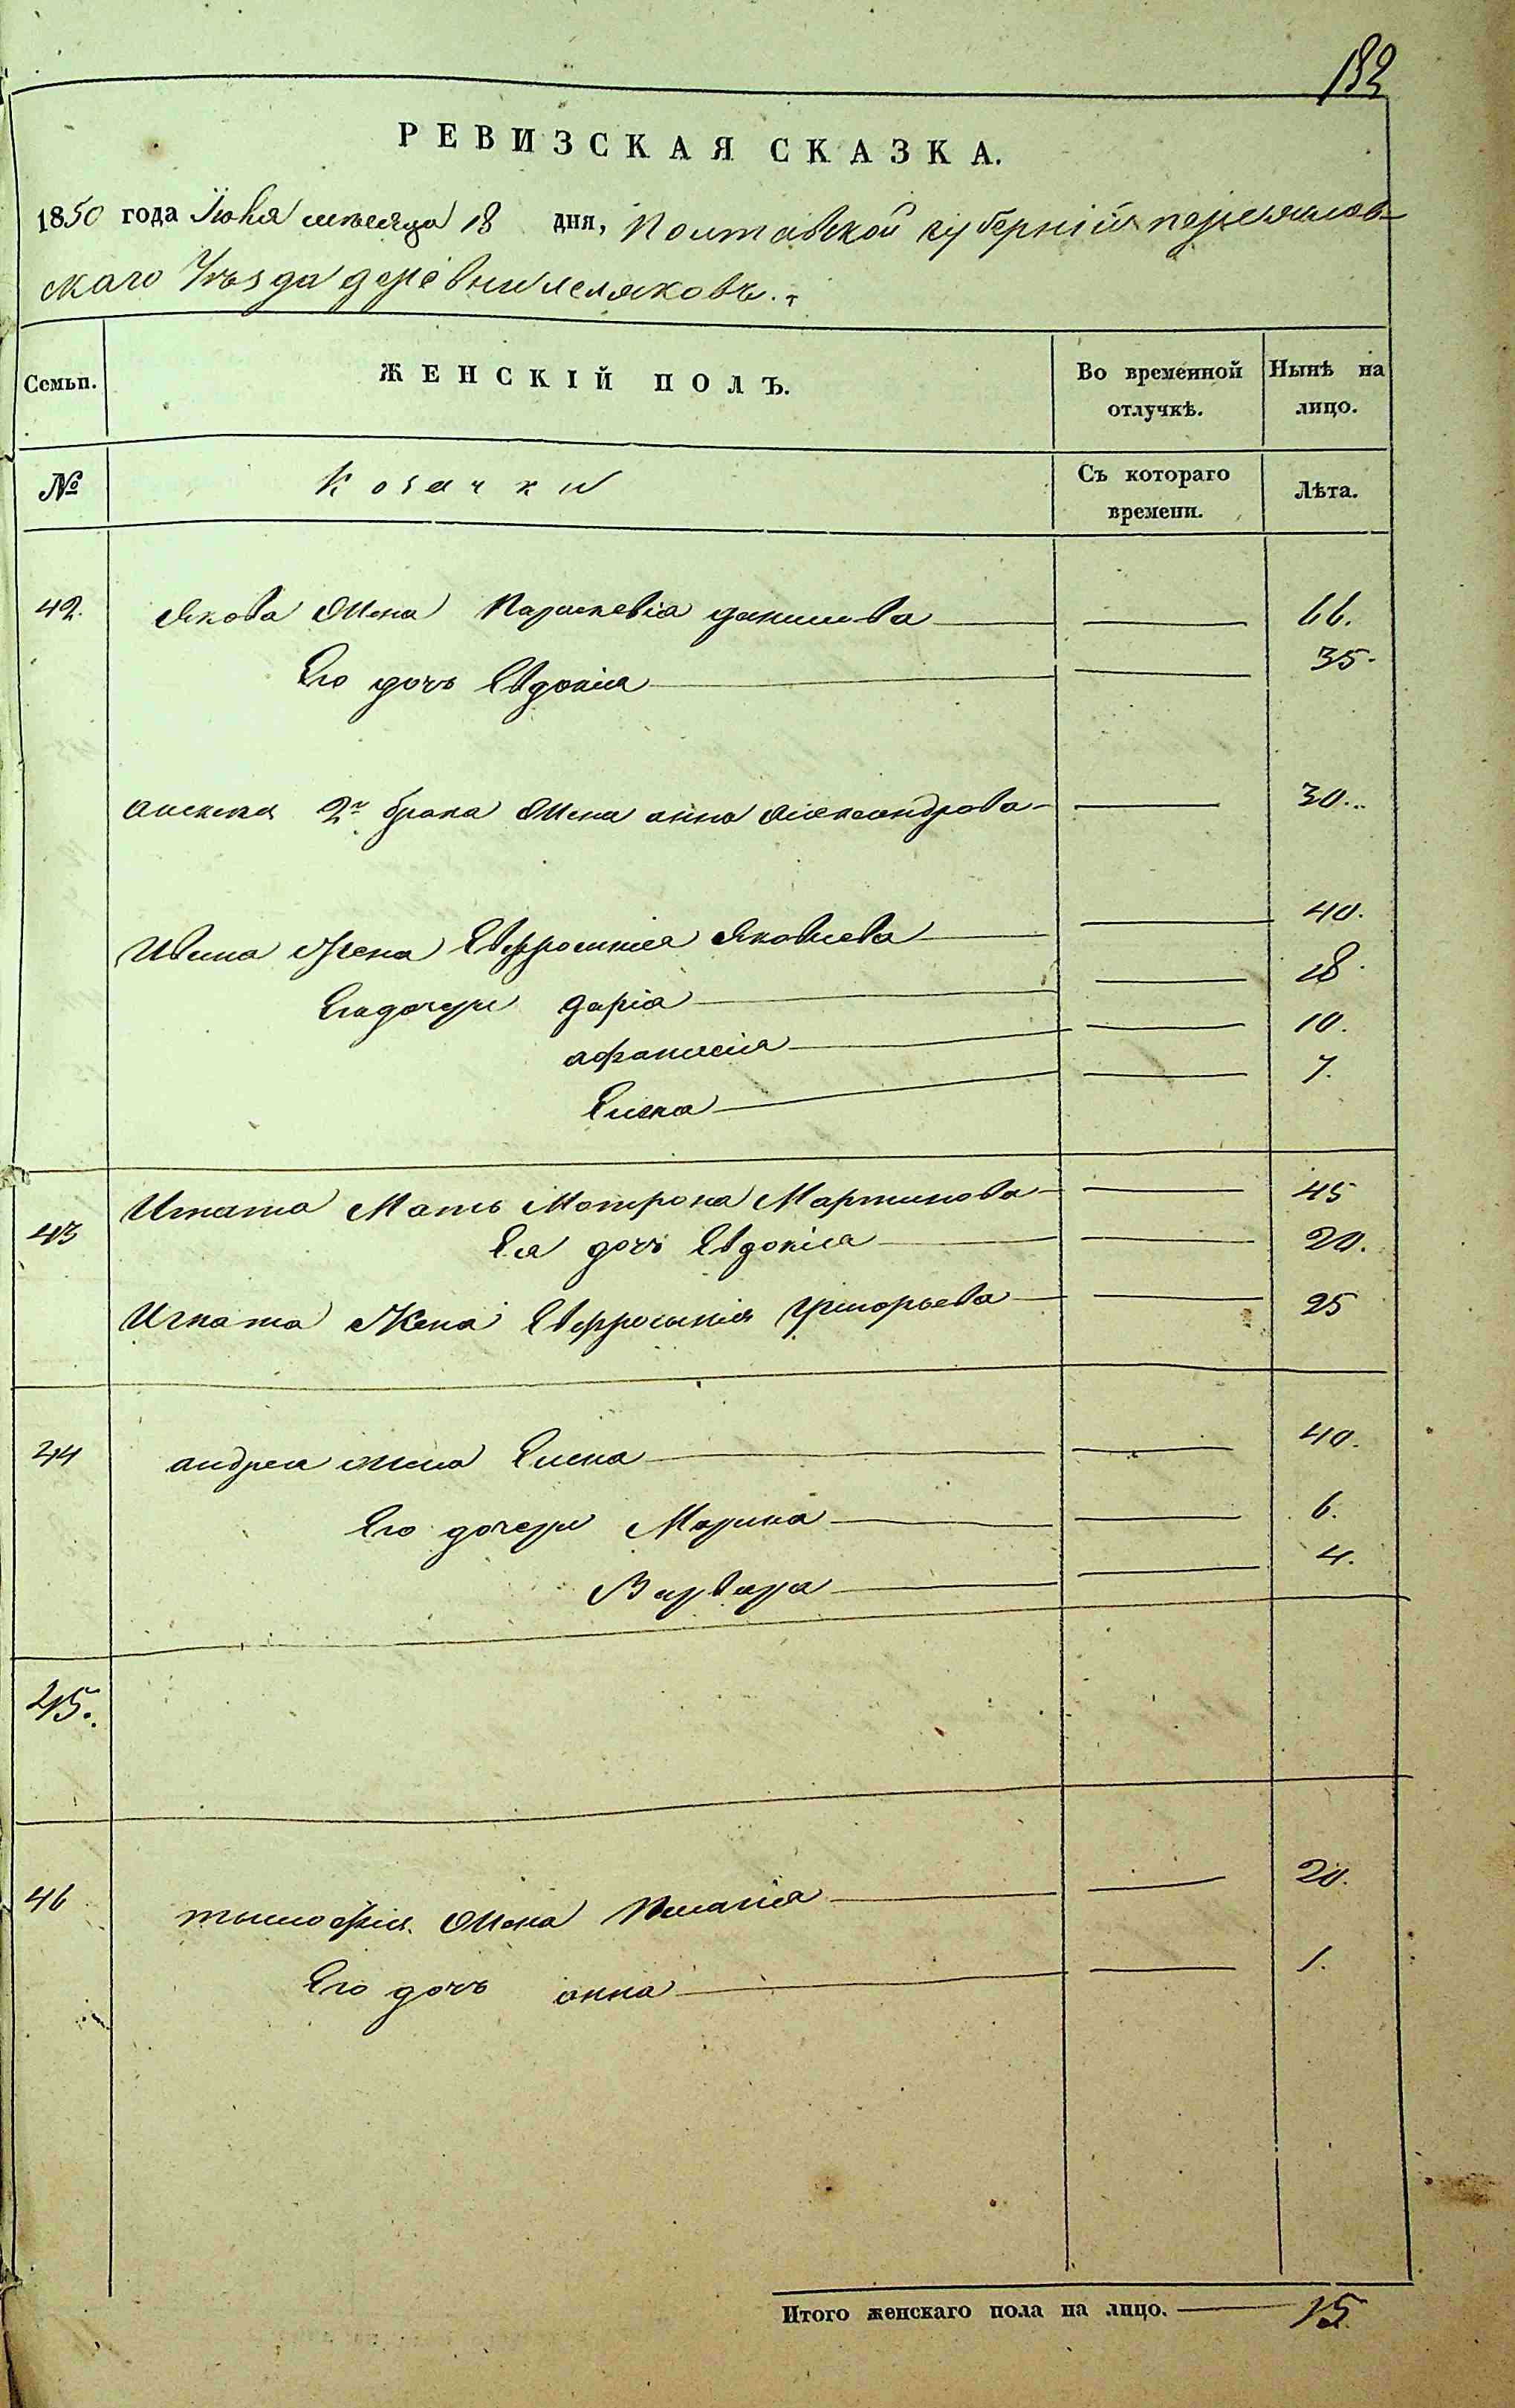 182
РЕВИЗСКАЯ СКАЗКА.
1850 года Іюня месяца 18 дня, Полтавской губерніи переяслов-
скаго Уезда деревни леляковъ.
Семьи. ЖЕНСКІЙ ПОЛЪ. Во временной отлучкѣ. Нынѣ на лицо.
№ Козачки Съ котораго времени. Лѣта.
42. Якова Жена Параскевіа данилова 66.
Его дочь Евдокіа 35.
Алексея 2го брака Жена анна Александрова 30.
Ивана Жена Евфросиніа Яковлева 40.
Его дочери дарія 18.
афанасія 10.
Елена 7.
43 Игната Мать Мотрона Мартинова 45
Ея дочь Евдокіа 20.
Игната Жена Евфросинія Григорьева 25
44 андрея жена Елена 40.
Его дочери Марина 6.
Варвара 4.
45.
46 тымофія Жена 20.
Его дочь анна 1.
Итого женскаго пола на лицо. 15